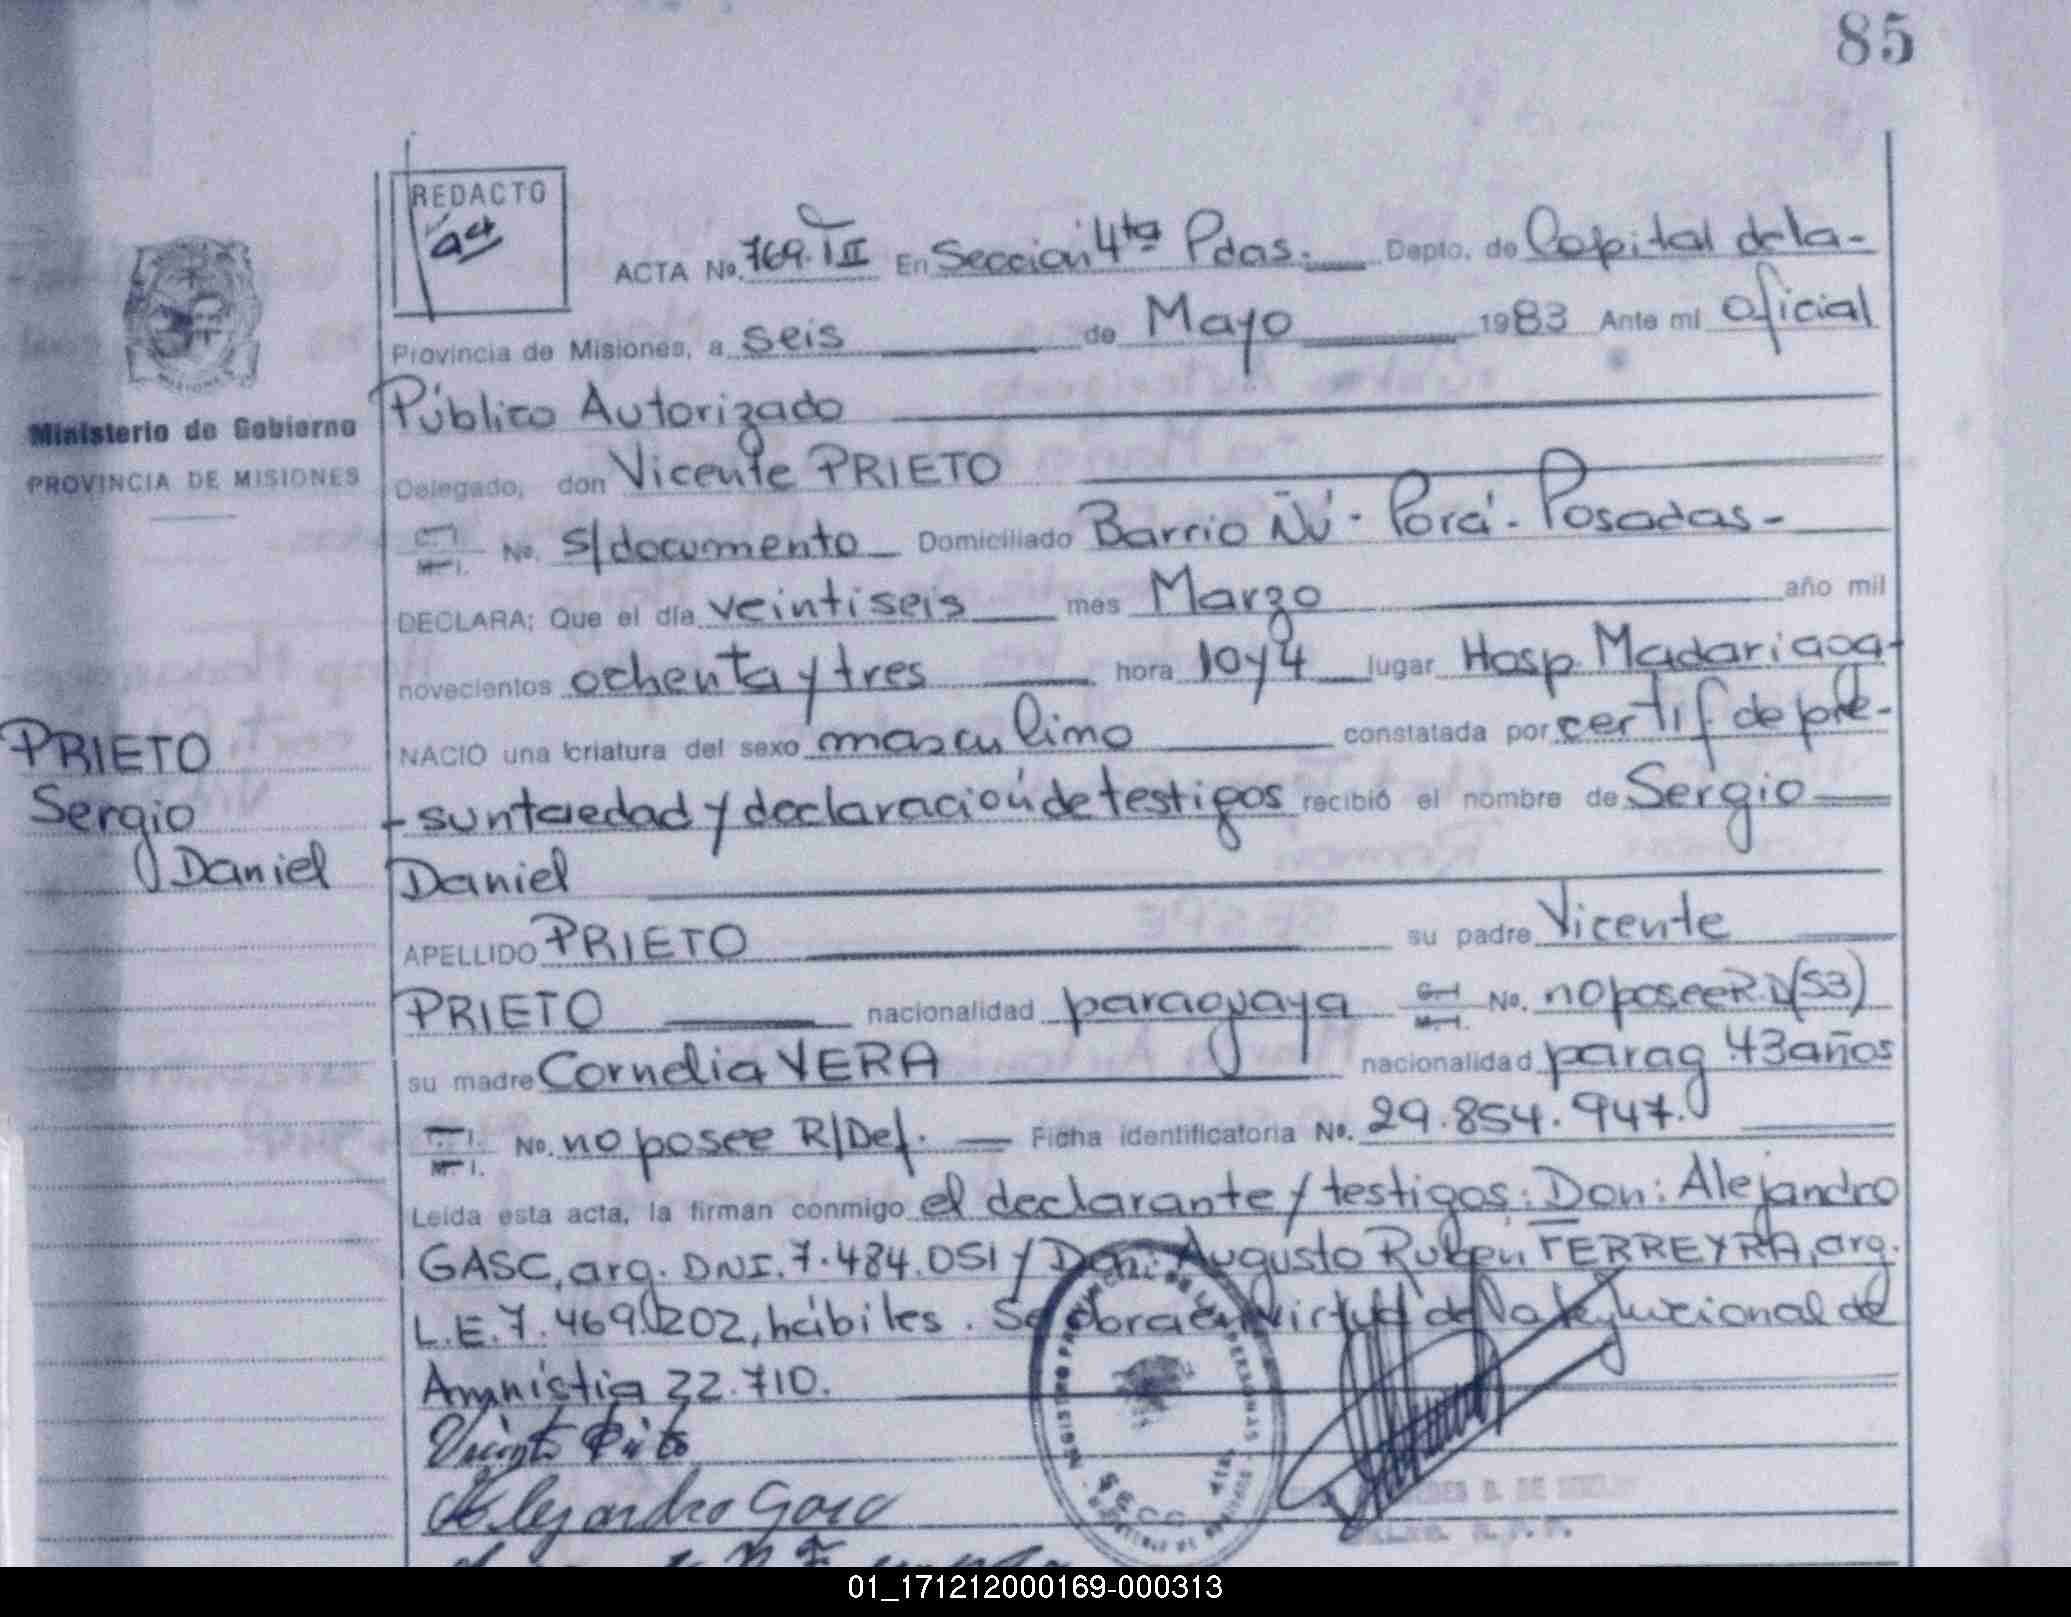 85
REDACTO
ACTA No. 769. T II En Sección 4ta Pdas. Depto. de Capital de la-
Provincia de Misiones, a seis de Mayo 1983 Ante mí oficial
Público Autorizado
Ministerio de Gobierno
PROVINCIA DE MISIONES
Delegado, don Vicente PRIETO
No. s/documento Domiciliado Barrio Ñú-Porá-Posadas-
DECLARA; Que el día veintiseis mes Marzo año mil
novecientos ochenta y tres hora 10 y 4 lugar Hosp. Madariaga-
NACIO una criatura del sexo masculino constatada por certif de pre-
-sunta edad y declaración de testigos recibió el nombre de Sergio
Daniel
PRIETO
Sergio
Daniel
APELLIDO PRIETO su padre Vicente
PRIETO nacionalidad paraguaya No. no posee R.D(53)
su madre Cornelia VERA nacionalidad parag 43 años
M.I. No. no posee R/Def. Ficha identificatoria No. 29.854.947.
Leída esta acta, la firman conmigo el declarante y testigos: Don: Alejandro
GASC, arg. DNI. 7.484.051 y Don: Augusto Rubén FERREYRA, arg.
L.E. 7.469.202, hábiles. Se labra en virtud de la ley nacional de
Amnistia 22.710.
Vicente Prieto
Alejandro Gasc
REGISTRO PROVINCIAL DE LAS PERSONAS
SECC. 4TA
01_171212000169-000313